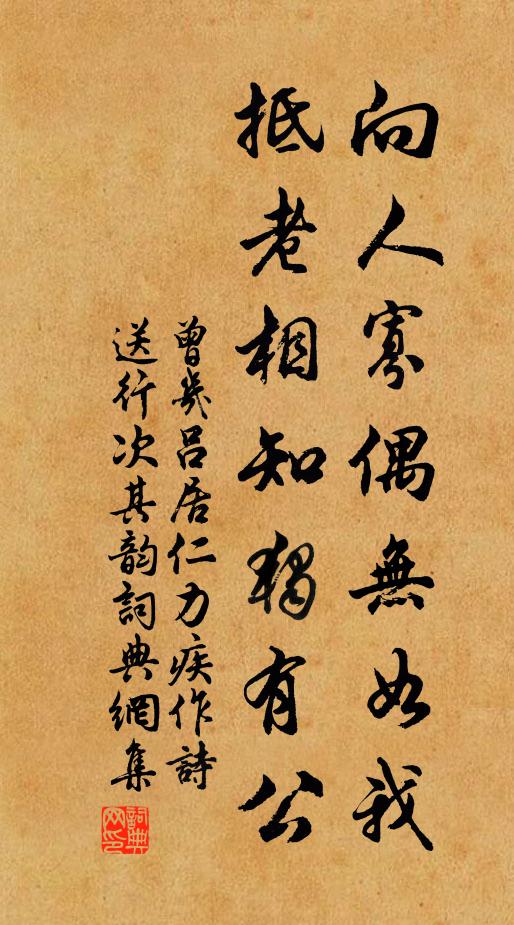 向人寡偶無如我
抵老相知獨有公
曾幾呂居仁力疾作詩
送行次其韵詞典網集
詞典网印